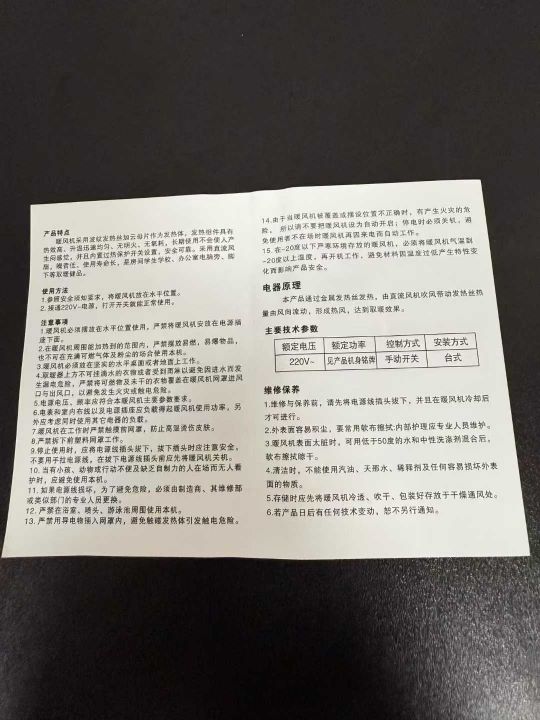 产品特点
暖风机采用波纹发热丝加云母片作为发热体，发热组件具有
热效高、升温迅速均匀、无明火、无氧耗，长期使用不会使人产
生闷感觉，并且内置过热保护开关设置，安全可靠。采用直流风
扇，噪音低、使用寿命长，是房间学生学校、办公室电脑旁、脚
下等取暖健品。
使用方法
1.参照安全须知要求，将暖风机放在水平位置。
2.接通220V~电源，打开开关就能正常使用。
注意事项
1.暖风机必须摆放在水平位置使用，严禁将暖风机安放在电源插
座下面。
2.在暖风机周围能加热到的范围内，严禁摆放易燃、易爆物品，
也不可在充满可燃气体及粉尘的场合使用本机。
3.暖风机必须放在坚实的水平桌面或者地面上工作。
4.取暖器上方不可挂滴水的衣物或者受到雨淋以避免因进水而发
生漏电危险，严禁将可燃物及未干的衣物覆盖在暖风机网罩进风
口与出风口，以避免发生火灾或触电危险。
5.电源电压、频率应符合本暖风机主要参数要求。
6.电表和室内布线以及电源插座应负载得起暖风机使用功率，另
外应考虑同时使用其它电器的负载。
7.暖风机在工作时严禁触摸前网罩，防止高温烫伤皮肤。
8.严禁拆下前塑料网罩工作。
9.停止使用时，应将电源线插头拔下，拔下插头时应注意安全，
不要用手拉电源线，在拔下电源线插头前应先将暖风机关机。
10.当有小孩、动物或行动不便及缺乏自制力的人在场而无人看
护时，应避免使用本机。
11.如果电源线损坏，为了避免危险，必须由制造商、其维修部
或类似部门的专业人员更换。
12.严禁在浴室、喷头、游泳池周围使用本机。
13.严禁用导电物插入网罩内，避免触碰发热体引发触电危险。
14.由于当暖风机被覆盖或摆设位置不正确时，有产生火灾的危
险，所以请不要把暖风机设为自动开启；停电时必须关机，避
免使用者不在场时暖风机再因来电而自动工作。
15.在-20度以下严寒环境存放的暖风机，必须将暖风机气温到
-20度以上湿度，再开机工作，避免材料因温度过低产生特性变
化而影响产品安全。
电器原理
本产品通过金属发热丝发热，由直流风机吹风带动发热丝热
量由风向流动，形成热风，达到取暖效果。
主要技术参数
额定电压 额定功率 控制方式 安装方式
220V~ 见产品机身铭牌 手动开关 台式
维修保养
1.维修与保养前，请先将电源线插头拔下，并且在暖风机冷却后
才可进行。
2.外表面容易积尘，要常用软布擦拭;内部护理应专业人员维护。
3.暖风机表面太脏时，可用低于50度的水和中性洗涤剂混合后，
软布擦拭晾干。
4.清洁时，不能使用汽油、天那水、稀释剂及任何容易损坏外表
面的物质。
5.存储时应先将暖风机冷透、吹干、包装好存放于干燥通风处。
6.若产品日后有任何技术变动，恕不另行通知。